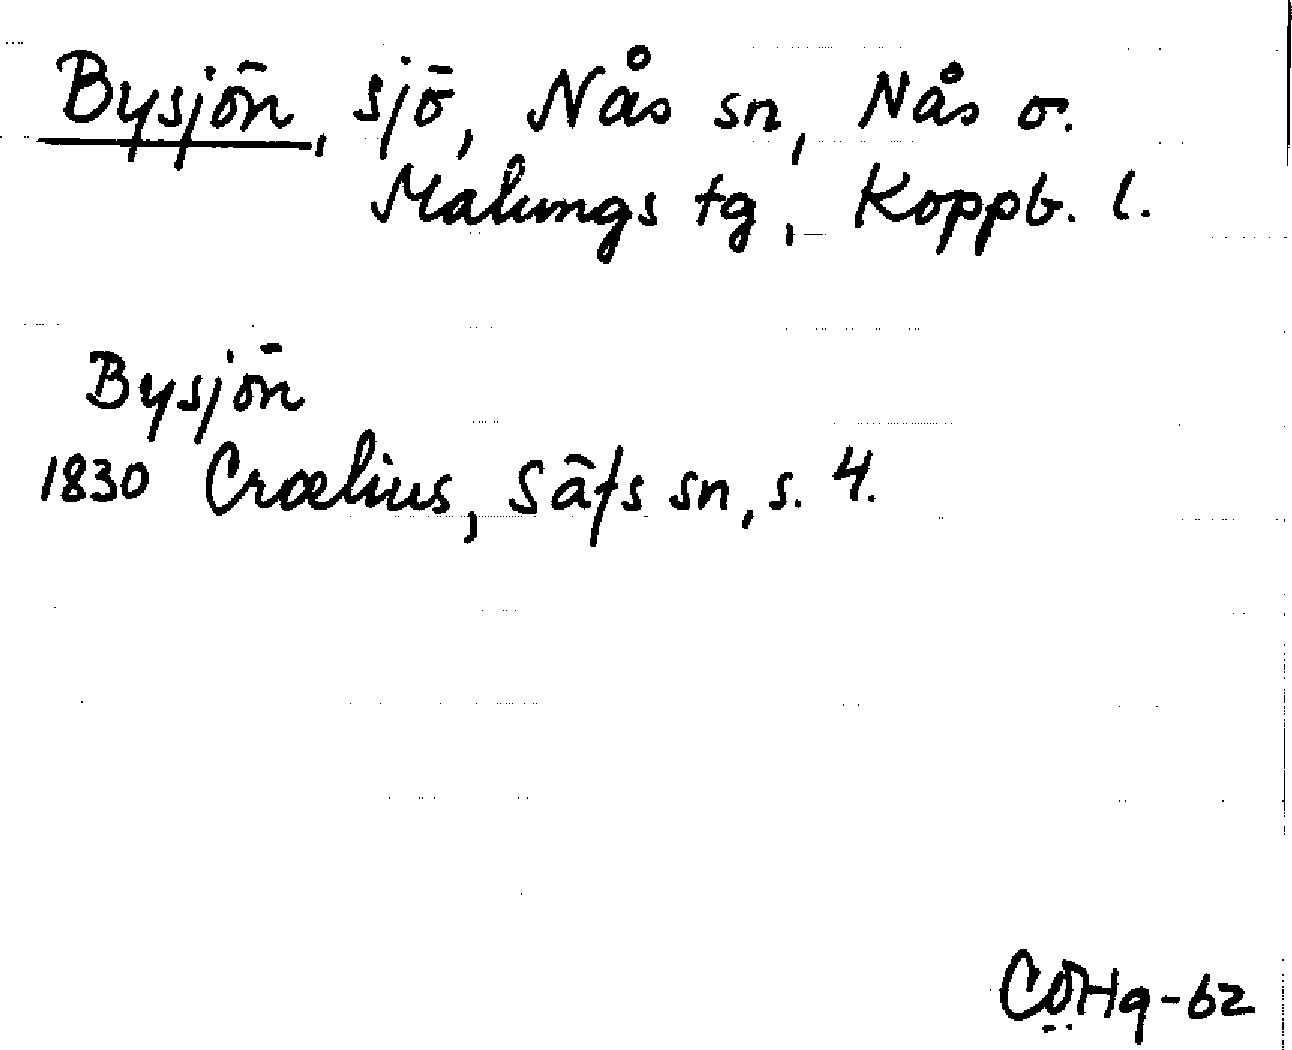 Bysjön, sjö, Nås sn, Nås o.
Malungs tg, Koppb. l.
Bysjön
1830 Crælius, Säfs sn, s. 4.
CÖHg-62